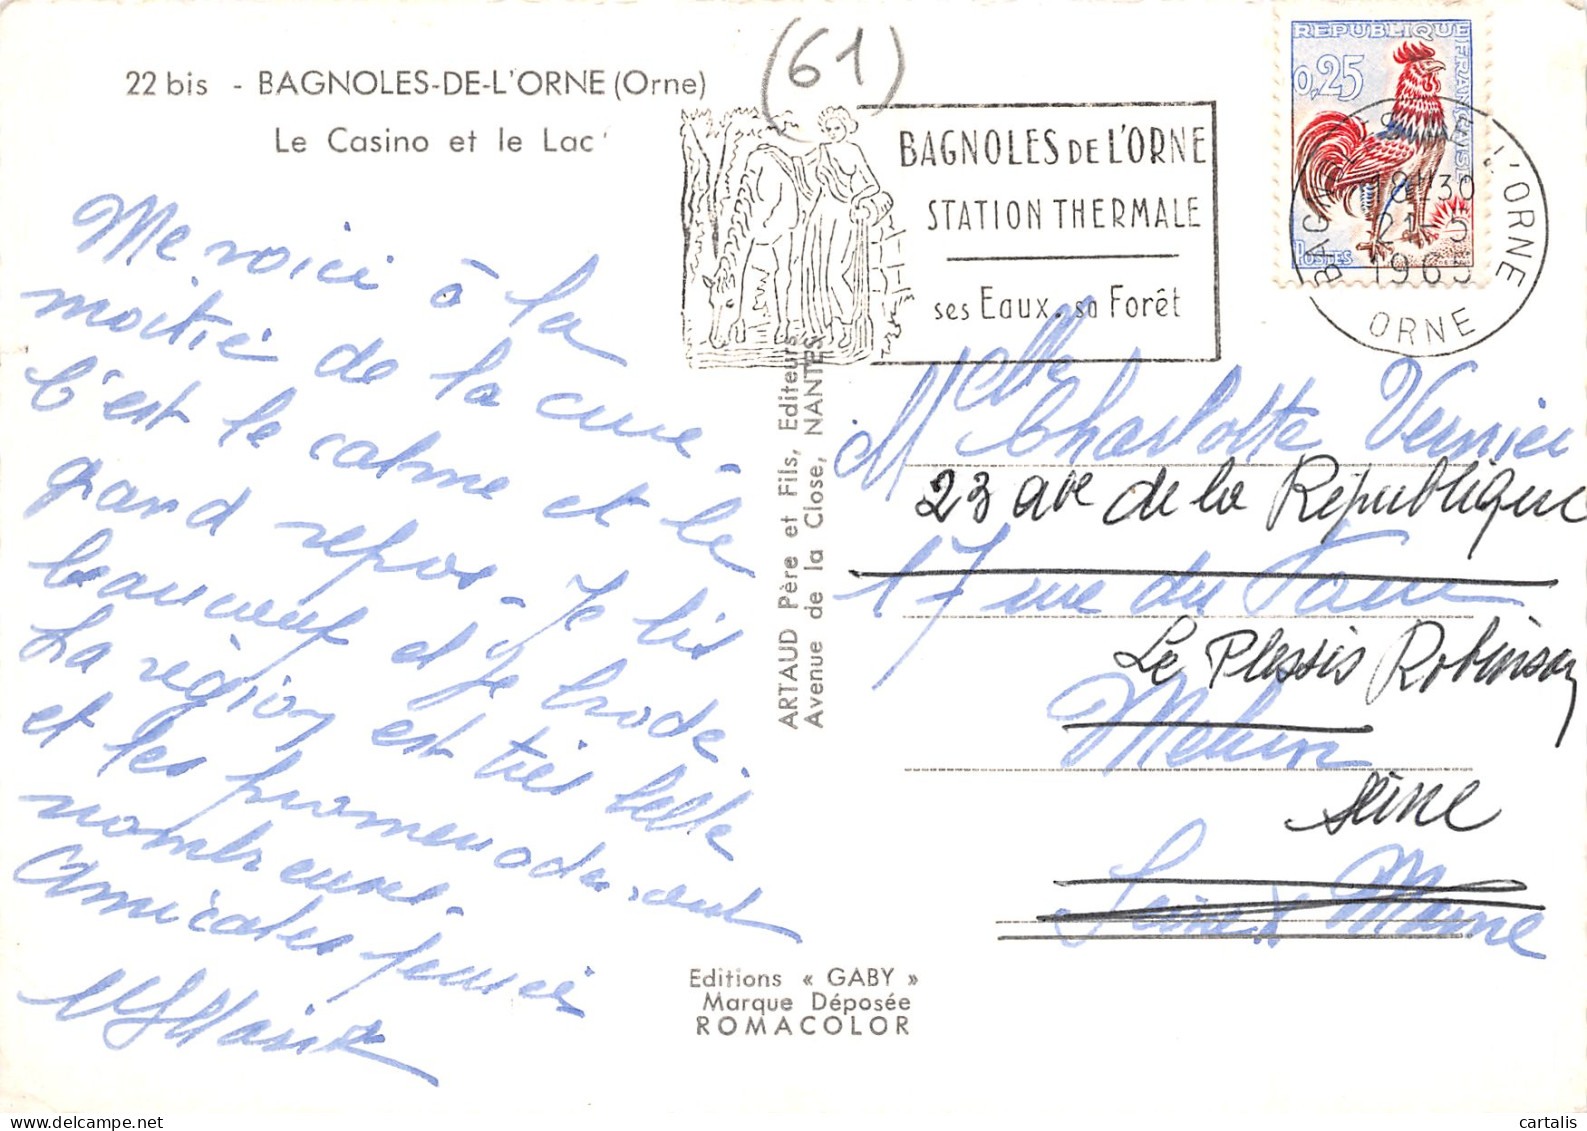 22 bis - BAGNOLES-DE-L'ORNE (Orne)
Le Casino et le Lac
(61)
BAGNOLES DE L'ORNE
STATION THERMALE
ses Eaux. sa Forêt
REPUBLIQUE FRANÇAISE
0,25
POSTES
18H30
21-5
1965
ORNE
Me voici à la
moitié de la cure -
C'est le calme et le
grand repos - Je lis
beaucoup et je brode.
La région est très belle
et les promenades sont
nombreuses.
Amicales pensées
ARTAUD Père et Fils, Editeurs
Avenue de la Close, NANTES
Melle Charlotte Vernier
23 ave de la République
17 rue du
Le Plessis Robinson
Melun
Seine
Seine & Marne
Editions « GABY »
Marque Déposée
ROMACOLOR
cartalis